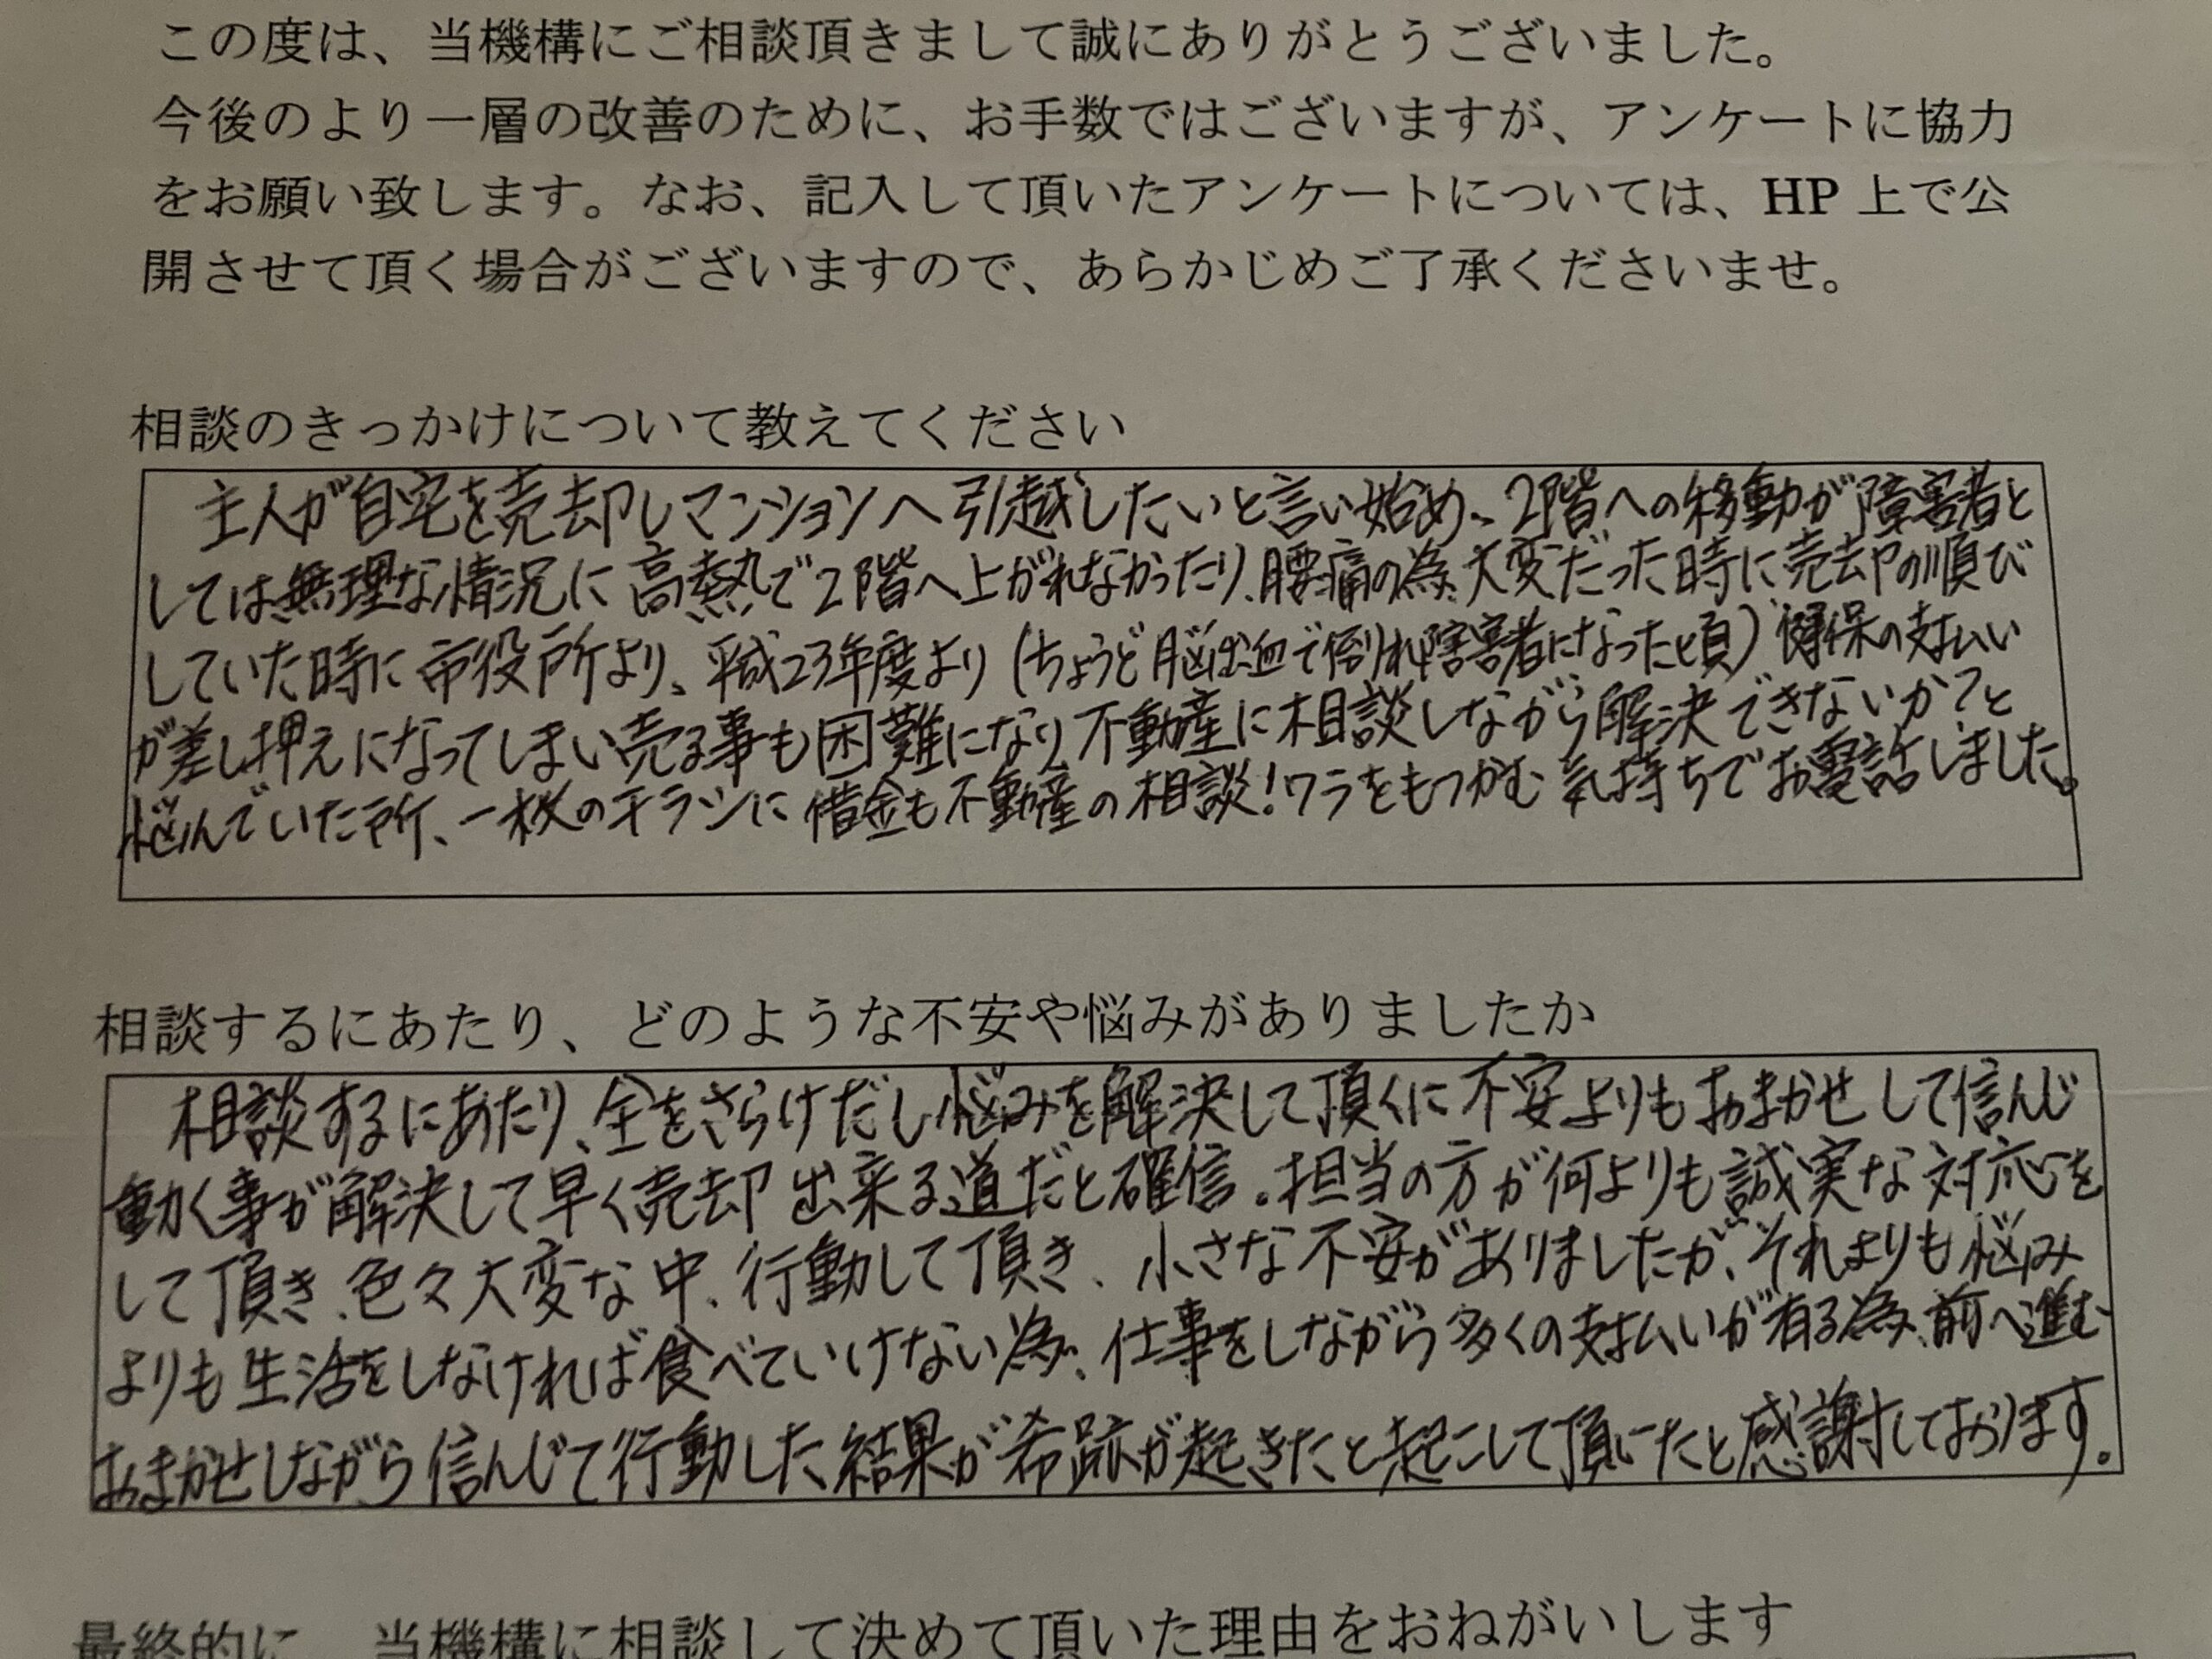 この度は、当機構にご相談頂きまして誠にありがとうございました。
今後のより一層の改善のために、お手数ではございますが、アンケートに協力
をお願い致します。なお、記入して頂いたアンケートについては、HP 上で公
開させて頂く場合がございますので、あらかじめご了承くださいませ。
相談のきっかけについて教えてください
主人が自宅を売却しマンションへ引越したいと言い始め、2階への移動が障害者と
しては無理な情況に高熱で2階へ上がれなかったり、腰痛の為、大変だった時に売却の順び
していた時に市役所より、平成23年度より(ちょうど脳出血で倒れ障害者になった頃)健保の支払い
が差し押えになってしまい売る事も困難になり、不動産に相談しながら解決できないか?と
悩んでいた所、一枚のチラシに借金も不動産の相談!ワラをもつかむ気持ちでお電話しました。
相談するにあたり、どのような不安や悩みがありましたか
相談するにあたり、全をさらけだし悩みを解決して頂くに不安よりもおまかせして信んじ
動く事が解決して早く売却出来る道だと確信。担当の方が何よりも誠実な対応を
して頂き、色々大変な中、行動して頂き、小さな不安がありましたが、それよりも悩み
よりも生活をしなければ食べていけない為、仕事をしながら多くの支払いが有る為、前へ進む
おまかせしながら信んじて行動した結果が希跡が起きたと起こして頂いたと感謝しております。
最終的に、当機構に相談して決めて頂いた理由をおねがいします